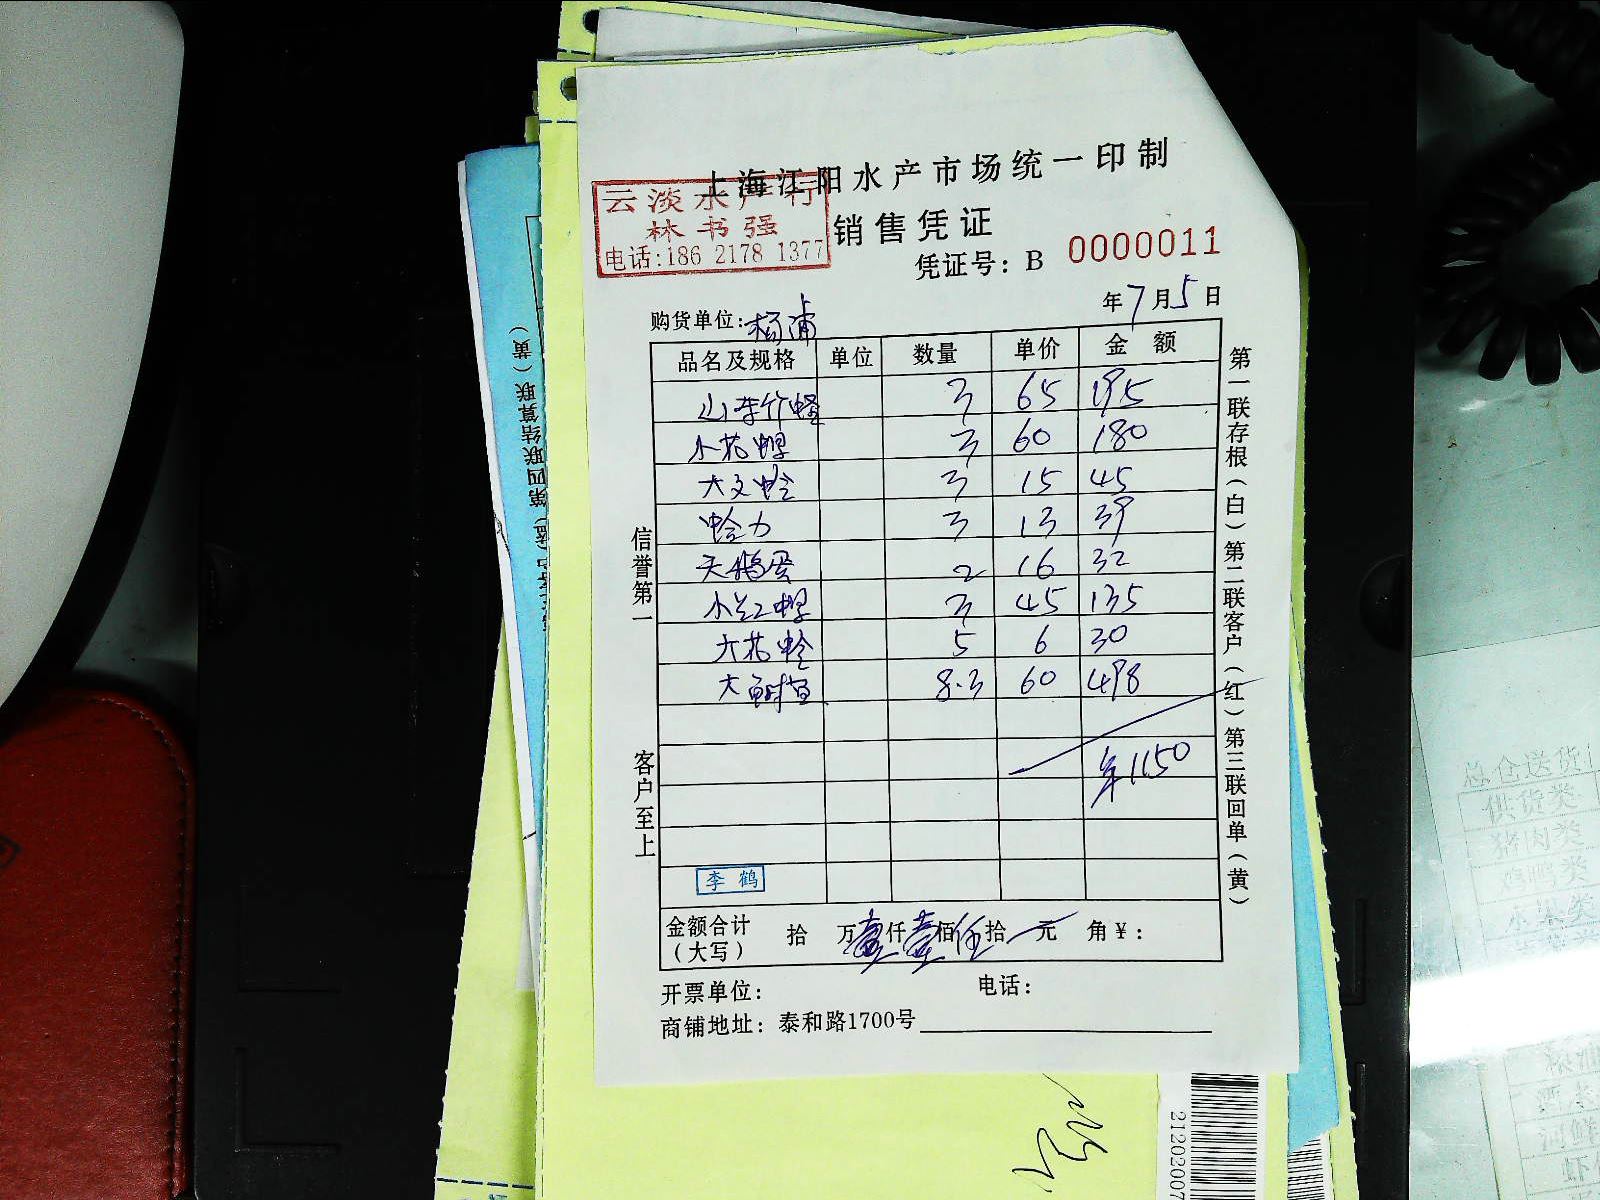 上海江阳水产市场统一印制
云淡水产行
林书强
电话:186 2178 1377
销售凭证
凭证号：B 0000011
年7月5日
购货单位:杨浦
品名及规格 单位 数量 单价 金额
山东竹蛏 3 65 195
小花螺 3 60 180
大文蛤 3 15 45
蛤力 3 13 39
天鹅蛋 2 16 32
小红螺 3 45 135
大花蛤 5 6 30
大鲥鱼 8.3 60 498
1150
李鹤
金额合计（大写） 拾 万壹仟壹佰伍拾 元 角￥：
开票单位： 电话：
商铺地址：泰和路1700号
信誉第一
客户至上
第一联存根（白）第二联客户（红）第三联回单（黄）
第四联结算联（黄）
总仓送货
供货类
猪肉类
鸡鸭类
水果类
2120200